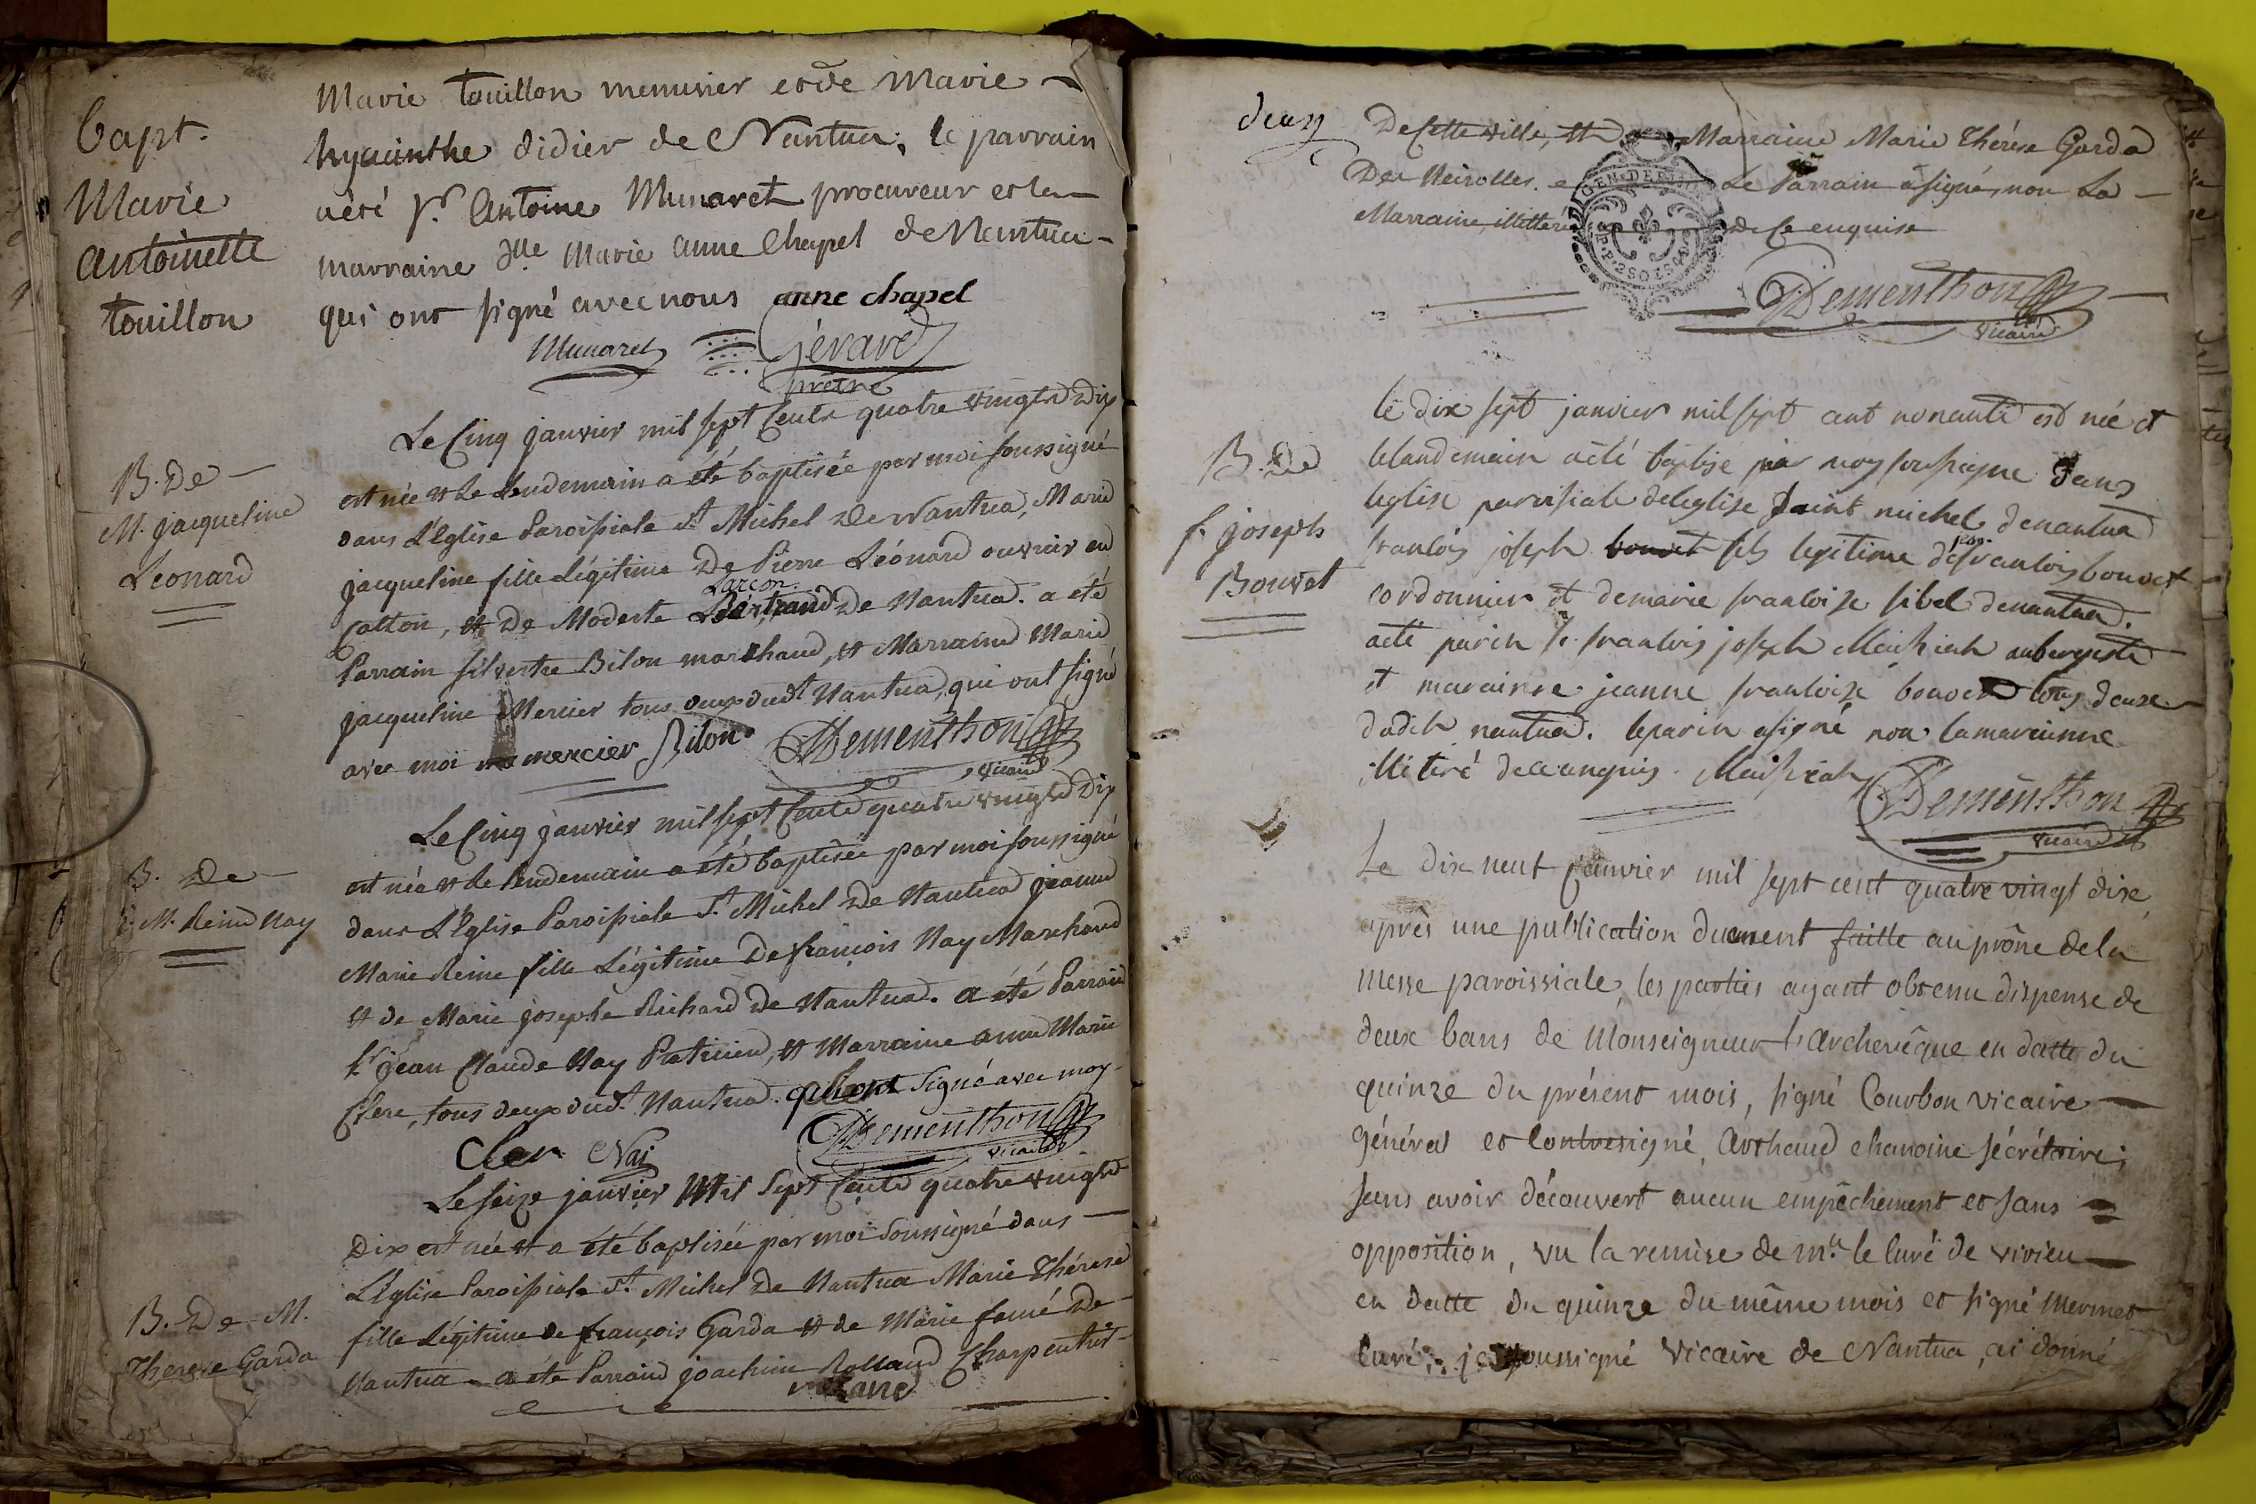 bapt.
Marie
antoinette
touillon
Marie touillon menusier et de Marie
hyacinthe didier de Nantua; le parrain
a été Sr. Antoine Munaret procureur et la
marraine dlle Marie anne Chapel de Nantua
qui ont signé avec nous anne chapel
Munaret Gérard
prêtre
B. De
M. jacqueline
Léonard
Le Cinq janvier mil sept Cents quatre vingts Dix
est née et Le Lendemain a été baptisée par moi soussigné
dans L'Eglise Paroissiale St. Michel De Nantua, Marie
jacqueline fille Légitime De Pierre Léonard ouvrier en
Larçon
Cotton, et De Modeste De Nantua. a été
Parrain silvestre Bilon marchand, et Marraine Marie
jacqueline Mercier tous deux dudt Nantua, qui ont signé
avec moi mercier Bilon Dementhon
vicaire
B. De
j. M. Reine Nay
Le Cinq janvier mil sept Cents quatre vingts Dix
est née et Le Lendemain a été baptisée par moi soussigné
dans L'Eglise Paroissiale St. Michel De Nantua jeanne
Marie Reine fille Légitime De françois Nay Marchand
et de Marie josephe Richard De Nantua. a été Parrain
Sr jean Claude Nay Praticien, et Marraine anne Marie
Clerc, tous deux dudt. Nantua. qui ont signé avec moy
Cler Nai Dementhon
vicaire
B. De M.
Therese Garda
Le seize janvier Mil Sept Cents quatre vingts
Dix est née et a été baptisée par moi soussigné dans
L'Eglise Paroissiale St. Michel De Nantua Marie Thérese
fille Légitime de françois Garda et de Marie famé De
Nantua a été Parrain joachim Rolland Charpentier
rolland
deux
De cette ville, et Marraine Marie Thérèse Garda
Des Neirolles. Le Parrain a signé, non La
Marraine, illitérée de ce enquise
GEN. DE
Dementhon
vicaire
B. De
f. joseph
Bouvet
le dix sept janvier mil sept cent nonante est née et
le landemain a été baptisé par moy soussigne dans
leglise parroisiale deleglise saint michel denantua
jean
francois joseph bouvet fils legitime de francois bouvet
cordonnier et demarie francoise sibel denantua.
a été parin sr. francois joseph Maissiat aubergiste
et marainne jeanne francoise bouvet tous deux
dudit nantua. le parin a signé non la marainne
illitiré de ce anquis. Maissiat Dementhon
vicaire
Le dix neuf janvier mil sept cent quatre vingt dix,
après une publication duement faitte au prône de la
messe paroissiale, les parties ayant obtenu dispense de
deux bans de Monseigneur L'archevêque en datte du
quinze du présent mois, signé Courbon vicaire
général et Contresigné, arthaud chanoine sécrétaire;
sans avoir découvert aucun empêchement et sans
opposition, vu la remise de mr. le curé de virieu
en datte du quinze du même mois et signé mermet
curé; je soussigné Vicaire de Nantua, ai donné